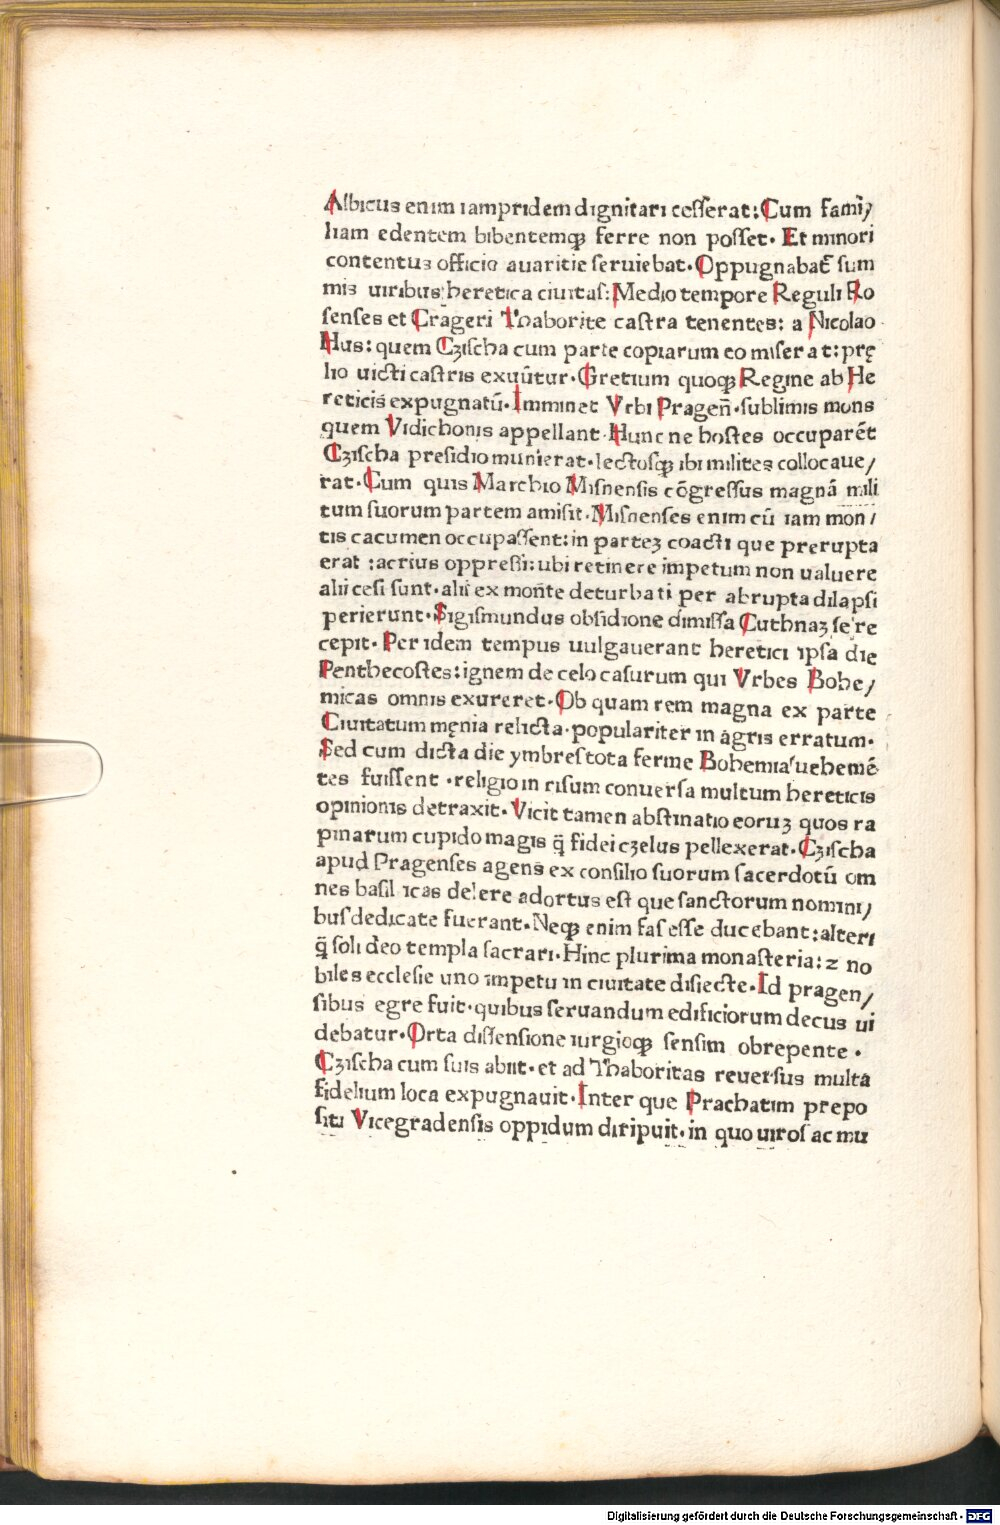 Albicus enim iampridem dignitari cesserat: Cum fami/
liam edentem bibentemqꝫ ferre non posset. Et minori
contentus officio auaritie seruiebat. Oppugnabat̃ sum
mis uiribus heretica ciuitas: Medio tempore Reguli Ro
senses et Crageri Thaborite castra tenentes: a Nicolao
Hus: quem Cziſcha cum parte copiarum eo miserat: prę
lio uicti castris exuũtur. Gretium quoqꝫ Regine ab He
reticis expugnatũ. Imminet Vrbi Pragen̄. sublimis mons
quem Vidichonis appellant. Hunc ne hostes occuparẽt
Czischa presidio munierat. lectosqꝫ ibi milites collocaue/
rat. Cum quis Marchio Misnensis cōgressus magnā mili
tum suorum partem amisit. Misnenses enim cū iam mon/
tis cacumen occupassent: in parteꝫ coacti que prerupta
erat: acrius oppressi: ubi retinere impetum non ualuere
alii cesi sunt. alii ex mon̄te deturbati per abrupta dilapsi
perierunt. Sigismundus obsidione dimissa Cuthnaꝫ se re
cepit. Per idem tempus uulgauerant heretici ipsa die
Penthecostes: ignem de celo casurum qui Vrbes Bohe/
micas omnis exureret. Ob quam rem magna ex parte
Ciuitatum męnia relicta. populariter in agris erratum.
Sed cum dicta die ymbres tota ferme Bohemia uehemẽ
tes fuissent. religio in risum conuersa multum hereticis
opinionis detraxit. Vicit tamen abstinatio eoruꝫ quos ra
pinarum cupido magis q̄ fidei czelus pellexerat. Czischa
apud Pragenses agens ex consilio suorum sacerdotū om
nes basilicas delere adortus est que sanctorum nomini/
bus dedicate fuerant. Neqꝫ enim fas esse ducebant: alteri
q̄ soli deo templa sacrari. Hinc plurima monasteria: ⁊ no
biles ecclesie uno impetu in ciuitate disiecte. Id pragen/
sibus egre fuit. quibus seruandum edificiorum decus ui
debatur. Orta dissensione iurgioqꝫ sensim obrepente.
Czischa cum suis abiit. et ad Thaboritas reuersus multa
fidelium loca expugnauit. Inter que Prachatim prepo
siti Vicegradensis oppidum diripuit. in quo uiros ac mu
Digitalisierung gefördert durch die Deutsche Forschungsgemeinschaft - DFG